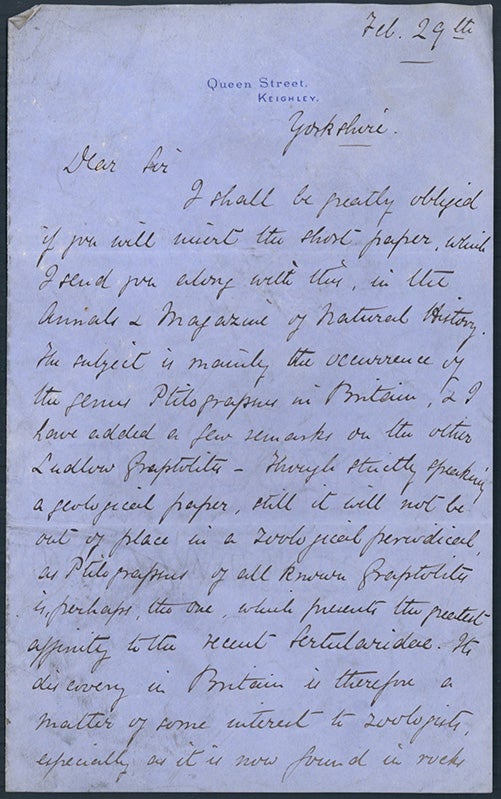 Feb. 29th
Queen Street,
KEIGHLEY.
Yorkshire.
Dear Sir
I shall be greatly obliged
if you will insert the short paper, which
I send you along with this, in the
Annals & Magazine of Natural History.
The subject is mainly the occurrence of
the genus Ptilograpsus in Britain, & I
have added a few remarks on the other
Ludlow Graptolites – Though strictly speaking
a geological paper, still it will not be
out of place in a zoological periodical,
as Ptilograpsus of all known Graptolites
is, perhaps, the one, which presents the greatest
affinity to the recent Sertularidae. Its
discovery in Britain is therefore a
matter of some interest to zoologists,
especially as it is now found in rocks